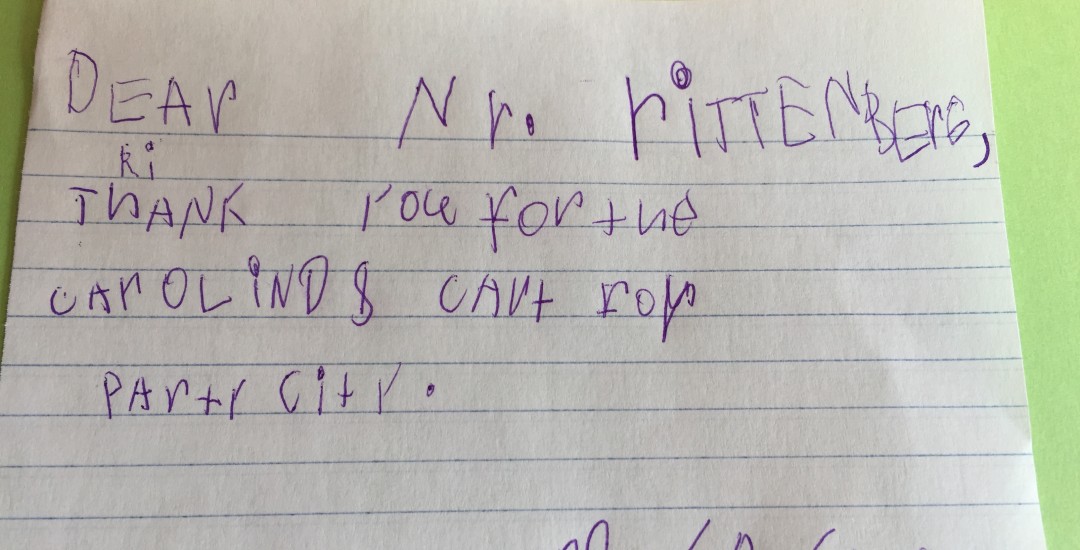 DEAr Nr. riTTENBErG,
ki
THANK you for the
CArOLIND$ CArt for
PArty City.